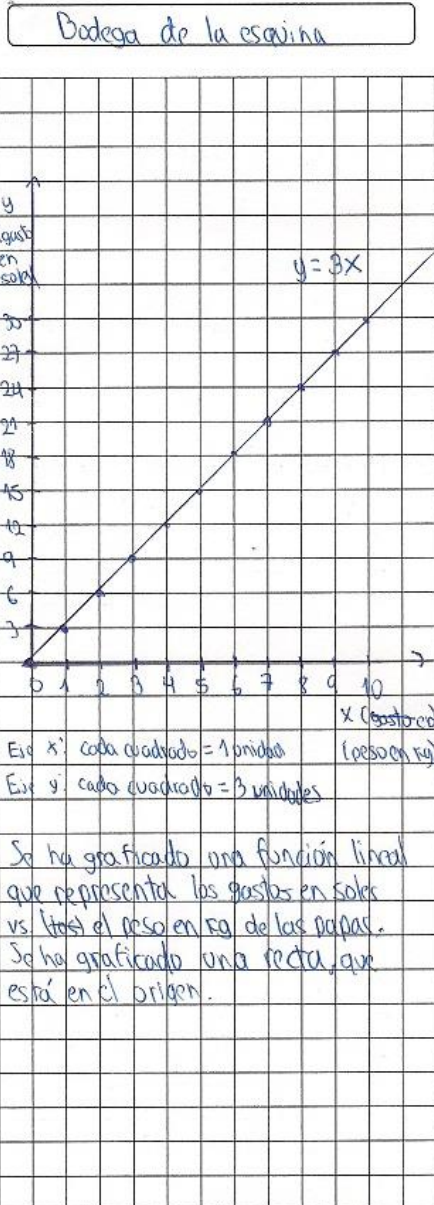 Bodega de la esquina
y
gasto
en
soles
y = 3x
30
27
24
21
18
15
12
9
6
3
0 1 2 3 4 5 6 7 8 9 10
x (gasto en
(peso en kg)
Eje x: cada cuadrado = 1 unidad
Eje y: cada cuadrado = 3 unidades
Se ha graficado una función lineal
que representa los gastos en soles
vs. (los) el peso en kg de las papas.
Se ha graficado una recta, que
está en el origen.